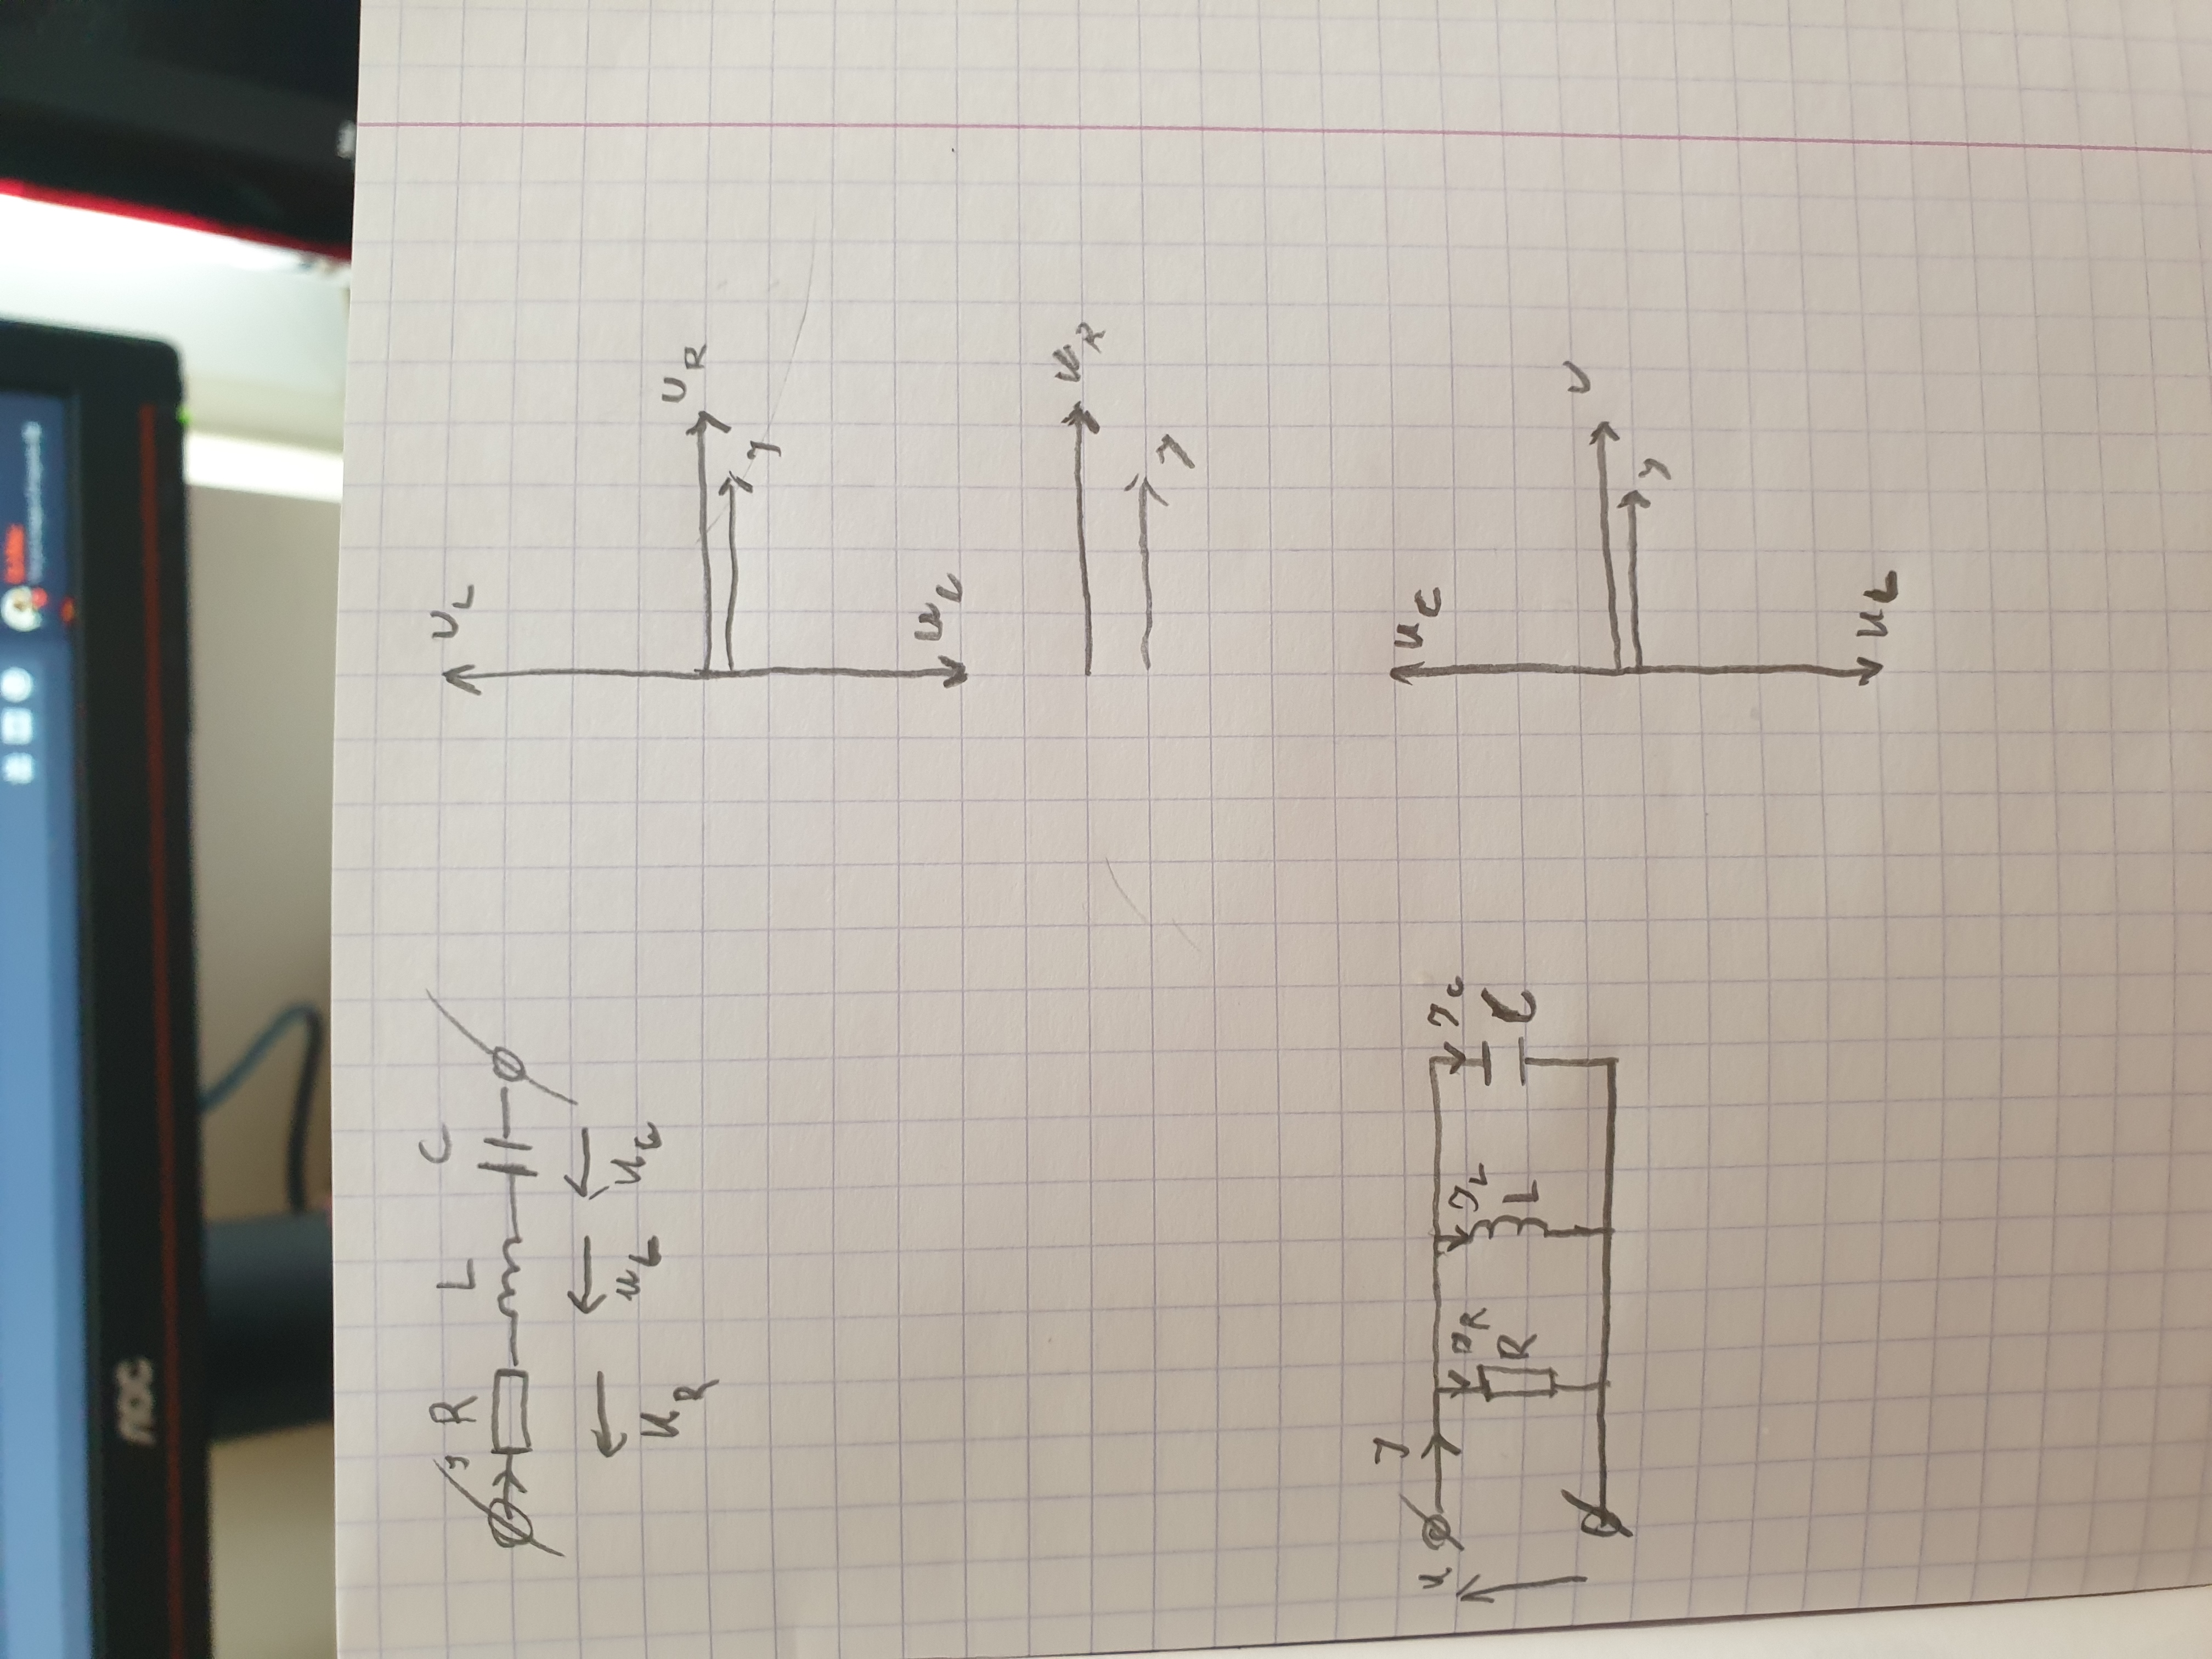 AOC
I R L C
U_R U_L U_C
U_L
U_R
I
U_C
U_R
I
I
U I_R I_L I_C
R L C
U_C
U
I
U_L